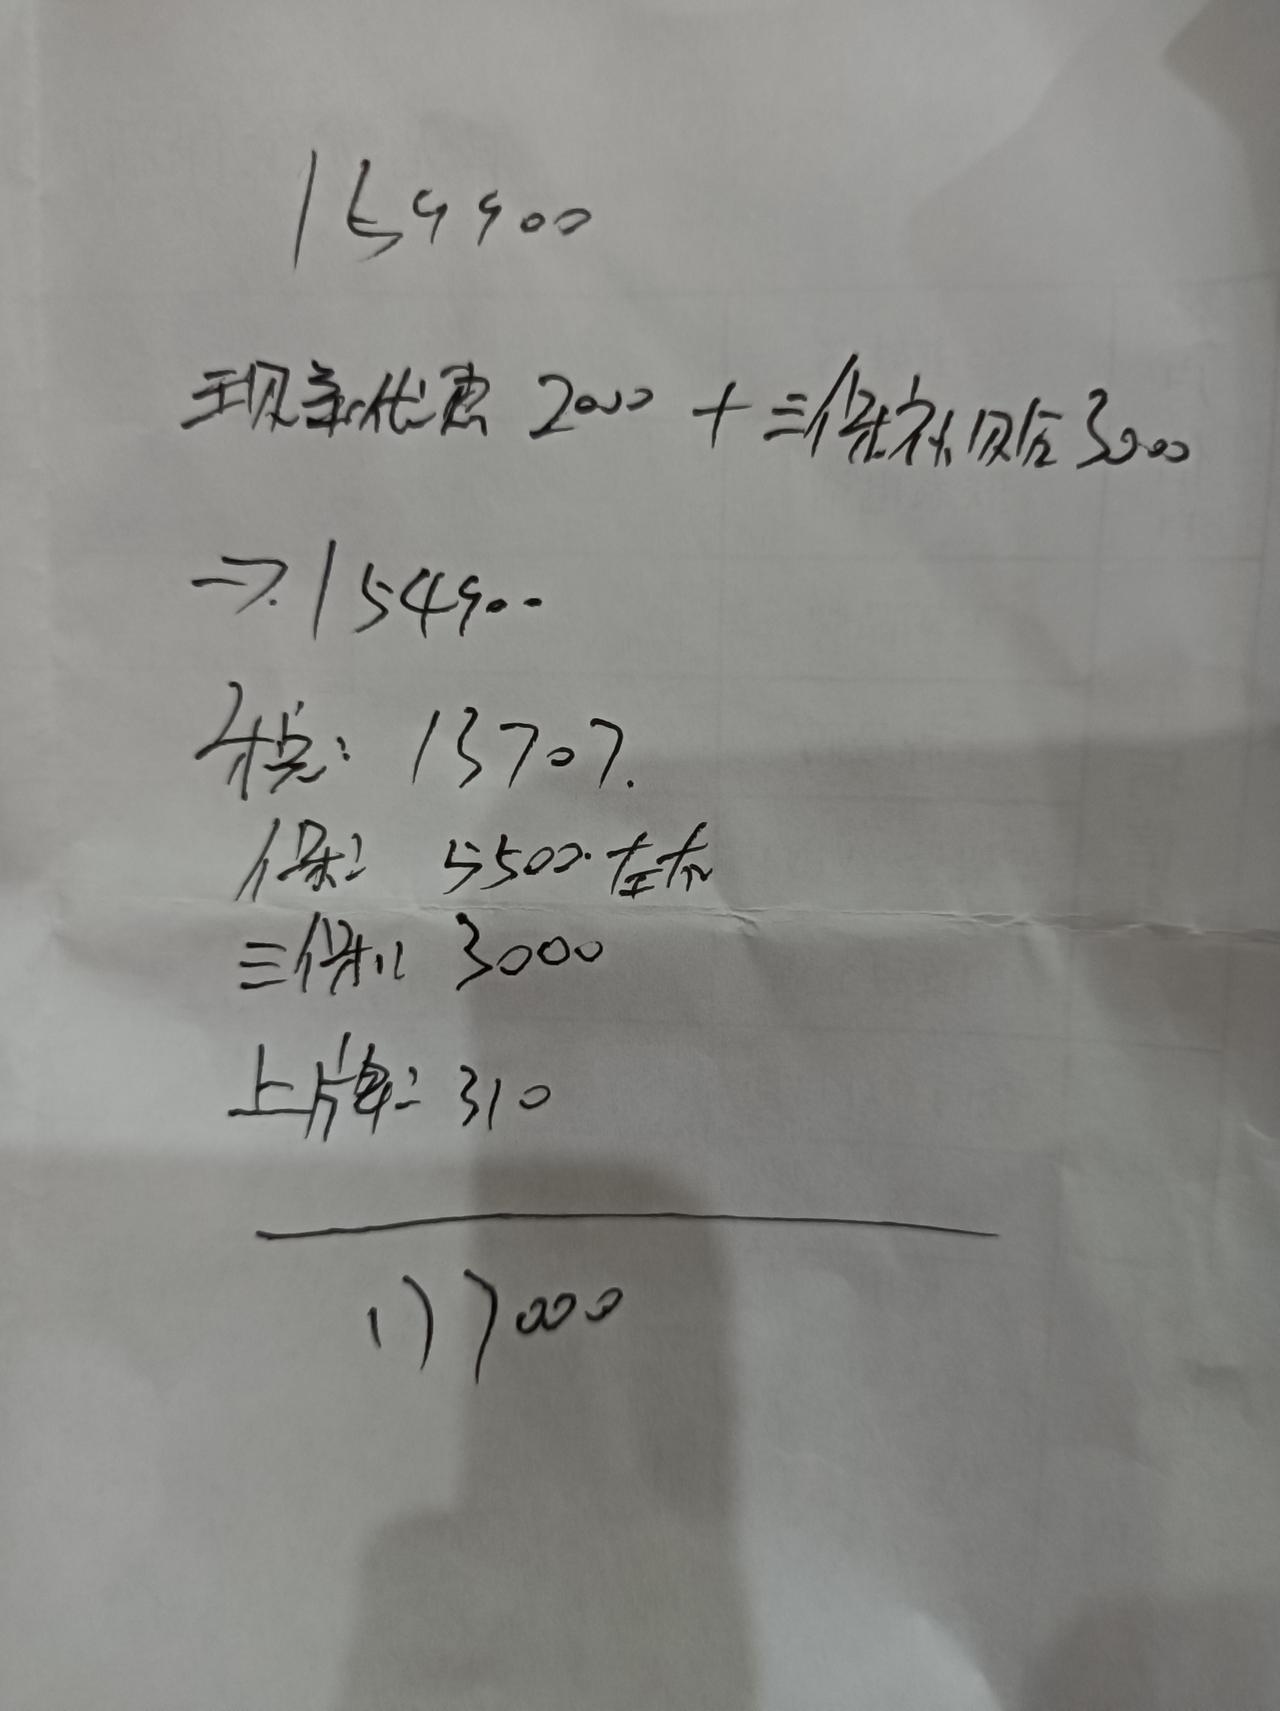 159900
现金优惠 2000 + 三保补贴后 3000
⇒ 154900
税: 13707.
保: 5500.左右
三保: 3000
上牌: 310
177000